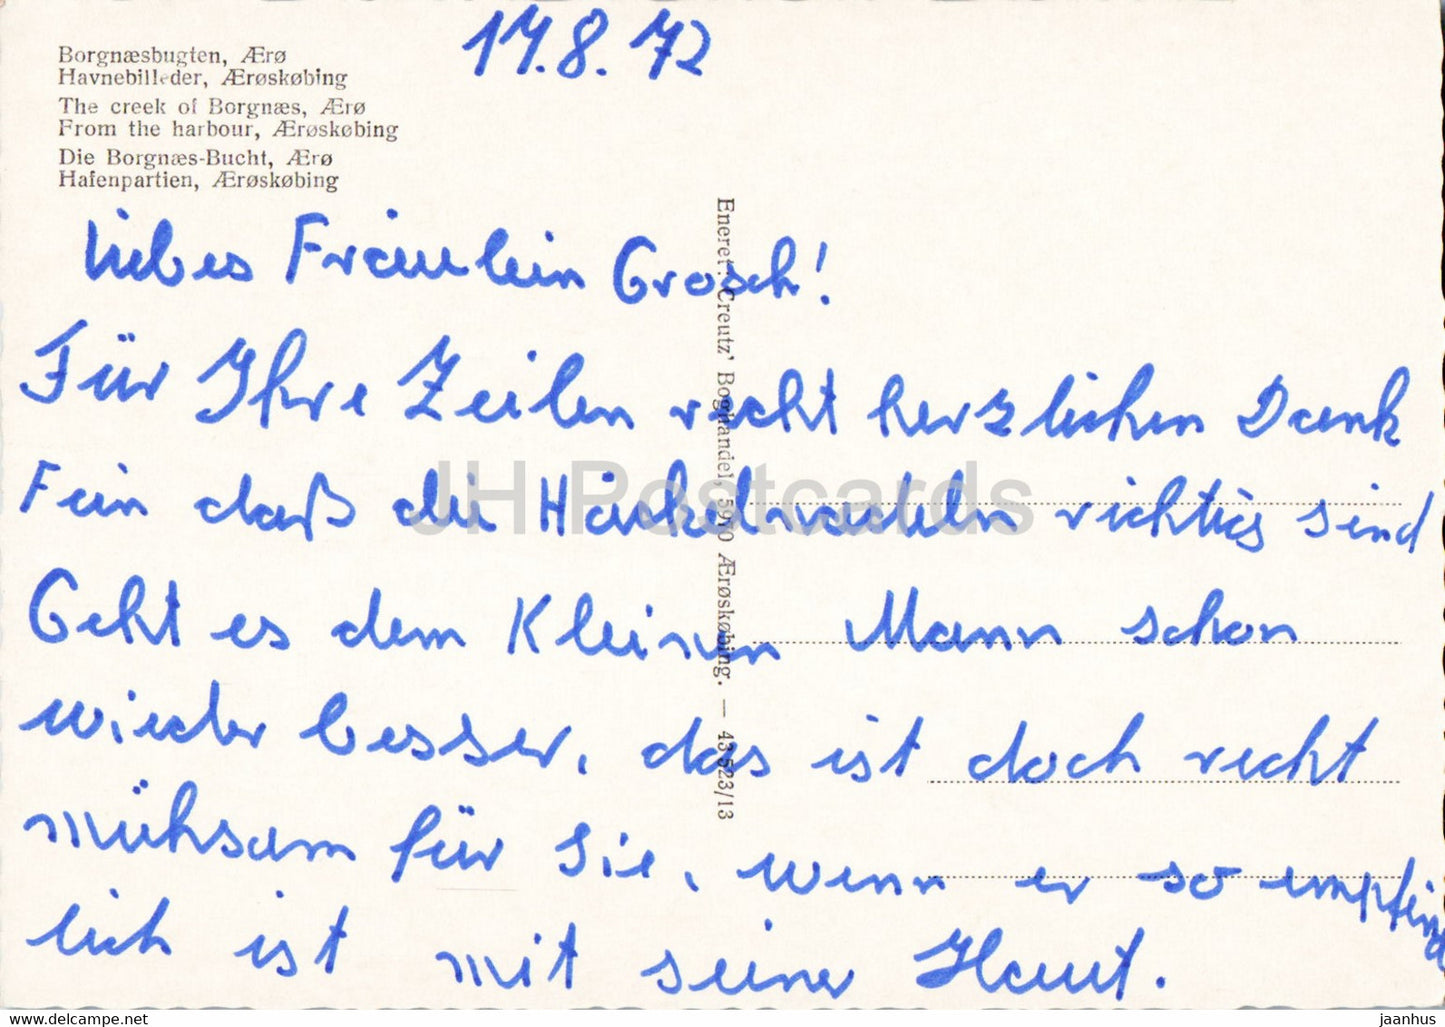 17.8.72
Borgnæsbugten, Ærø
Havnebilleder, Ærøskøbing
The creek of Borgnæs, Ærø
From the harbour, Ærøskøbing
Die Borgnæs-Bucht, Ærø
Hafenpartien, Ærøskøbing
Eneret: Creutz' Boghandel, 5970 Ærøskøbing. — 43523/13
Liebes Fräulein Grosch!
Für Ihre Zeilen recht herzlichen Dank
Fein daß die Häckelnadeln richtig sind
Geht es dem Kleinen Mann schon
wieder besser, das ist doch recht
mühsam für Sie, wenn er so empfind
lich ist mit seiner Haut.
JH Postcards
www.delcampe.net
jaanhus